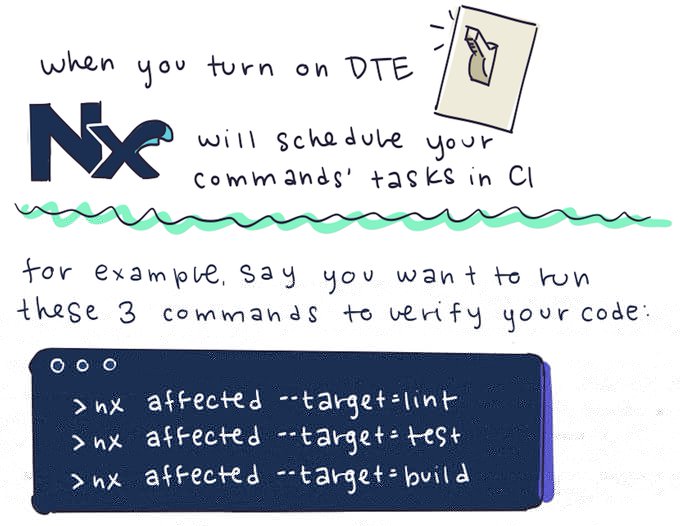 when you turn on DTE
Nx will schedule your
commands' tasks in CI
for example, say you want to run
these 3 commands to verify your code:
> nx affected --target=lint
> nx affected --target=test
> nx affected --target=build